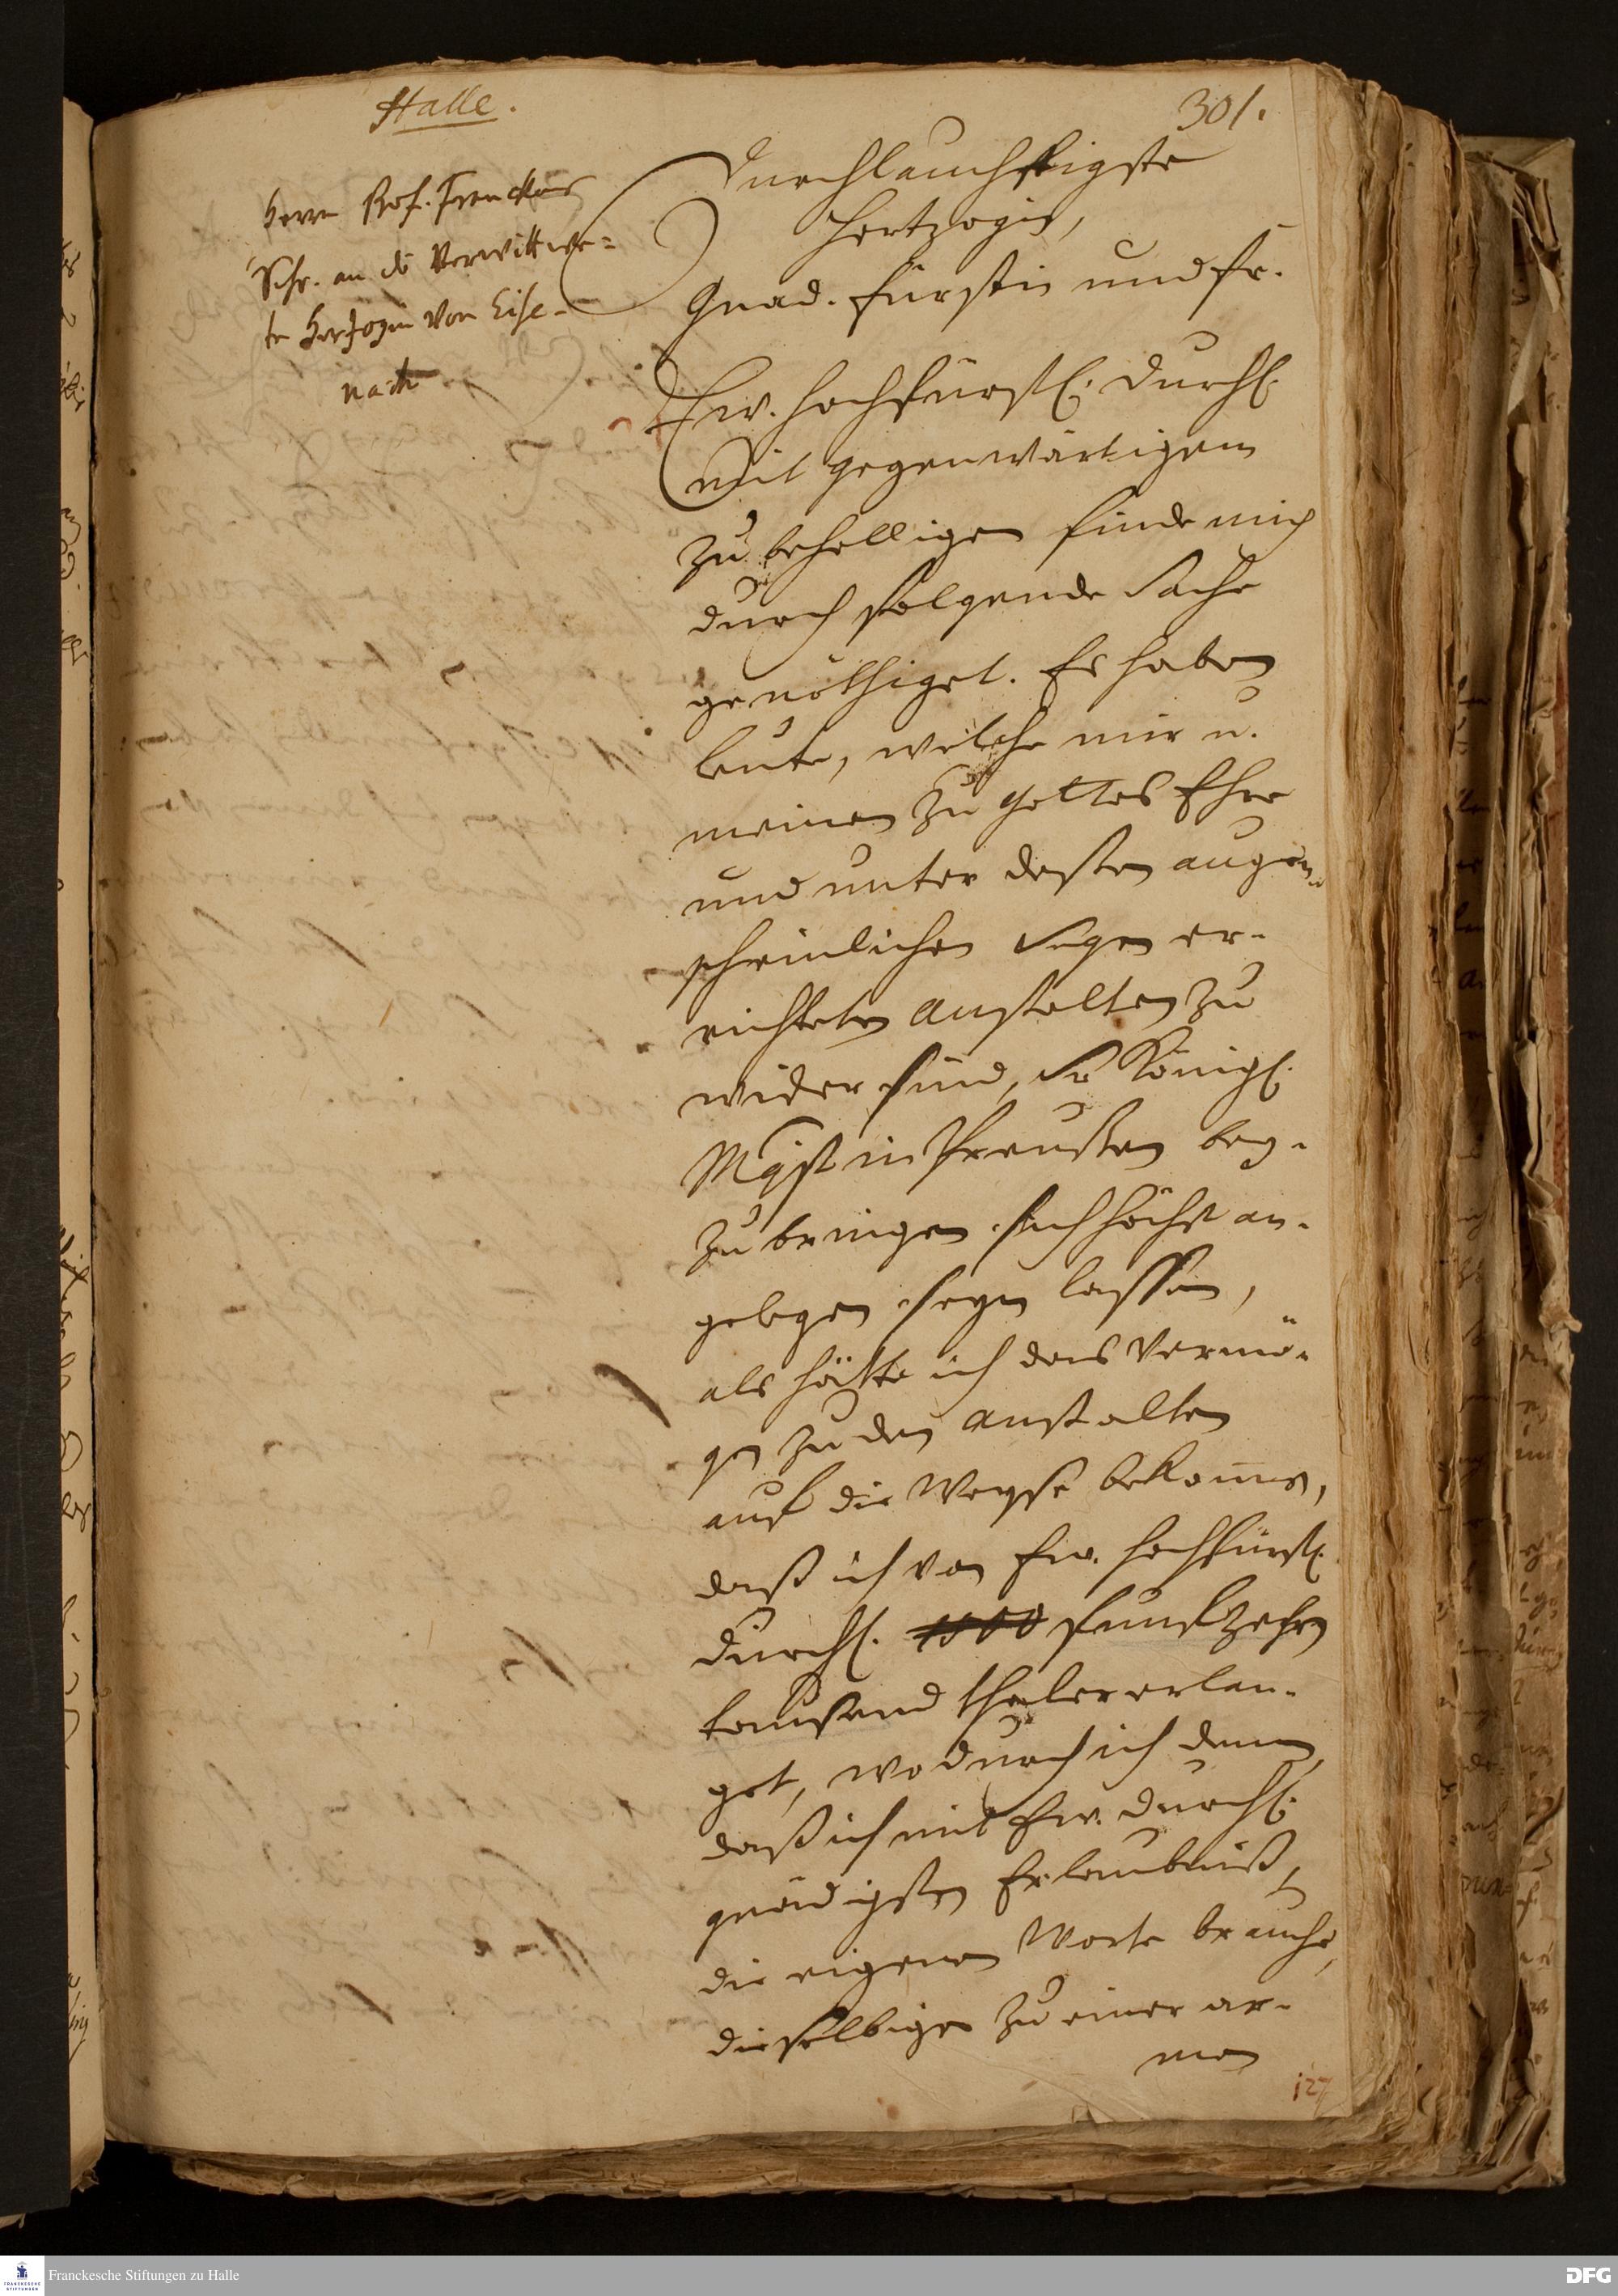 Halle.
301.
Herrn Prof. Franckens
Schr. an die Verwittwe=
te Herzogin von Eise-
nach
Durchlauchtigste
Hertzogin,
Gnad. Fürstin und Fr.
Ew. Hochfürstl. Durchl.
mit gegenwärtigem
zu behelligen finde mich
durch folgende Sache
genöthiget. Es haben
Leute, welche mir u.
meinen zu Gottes Ehre
und unter dessen augen-
scheinlichen Segen er-
richteten Anstalten zu
wider sind, Sr Königl.
Majst in Preussen bey-
zubringen sich höchst an-
gelegen seyn lassen,
als hätte ich das Vermö-
gen zu den Anstalten
auf die Weyse bekomen,
daß ich von Ew. Hochfürstl.
Durchl. 1500 funfzehen
tausend thaler erlan-
get, wodurch ich denn,
daß ich mit Ew. Durchl.
gnädigsten Erlaubniß,
die eigenen Worte brauche,
dieselbige zu einer ar-
men
127
Franckesche Stiftungen zu Halle
FRANCKESCHE
STIFTUNGEN
DFG